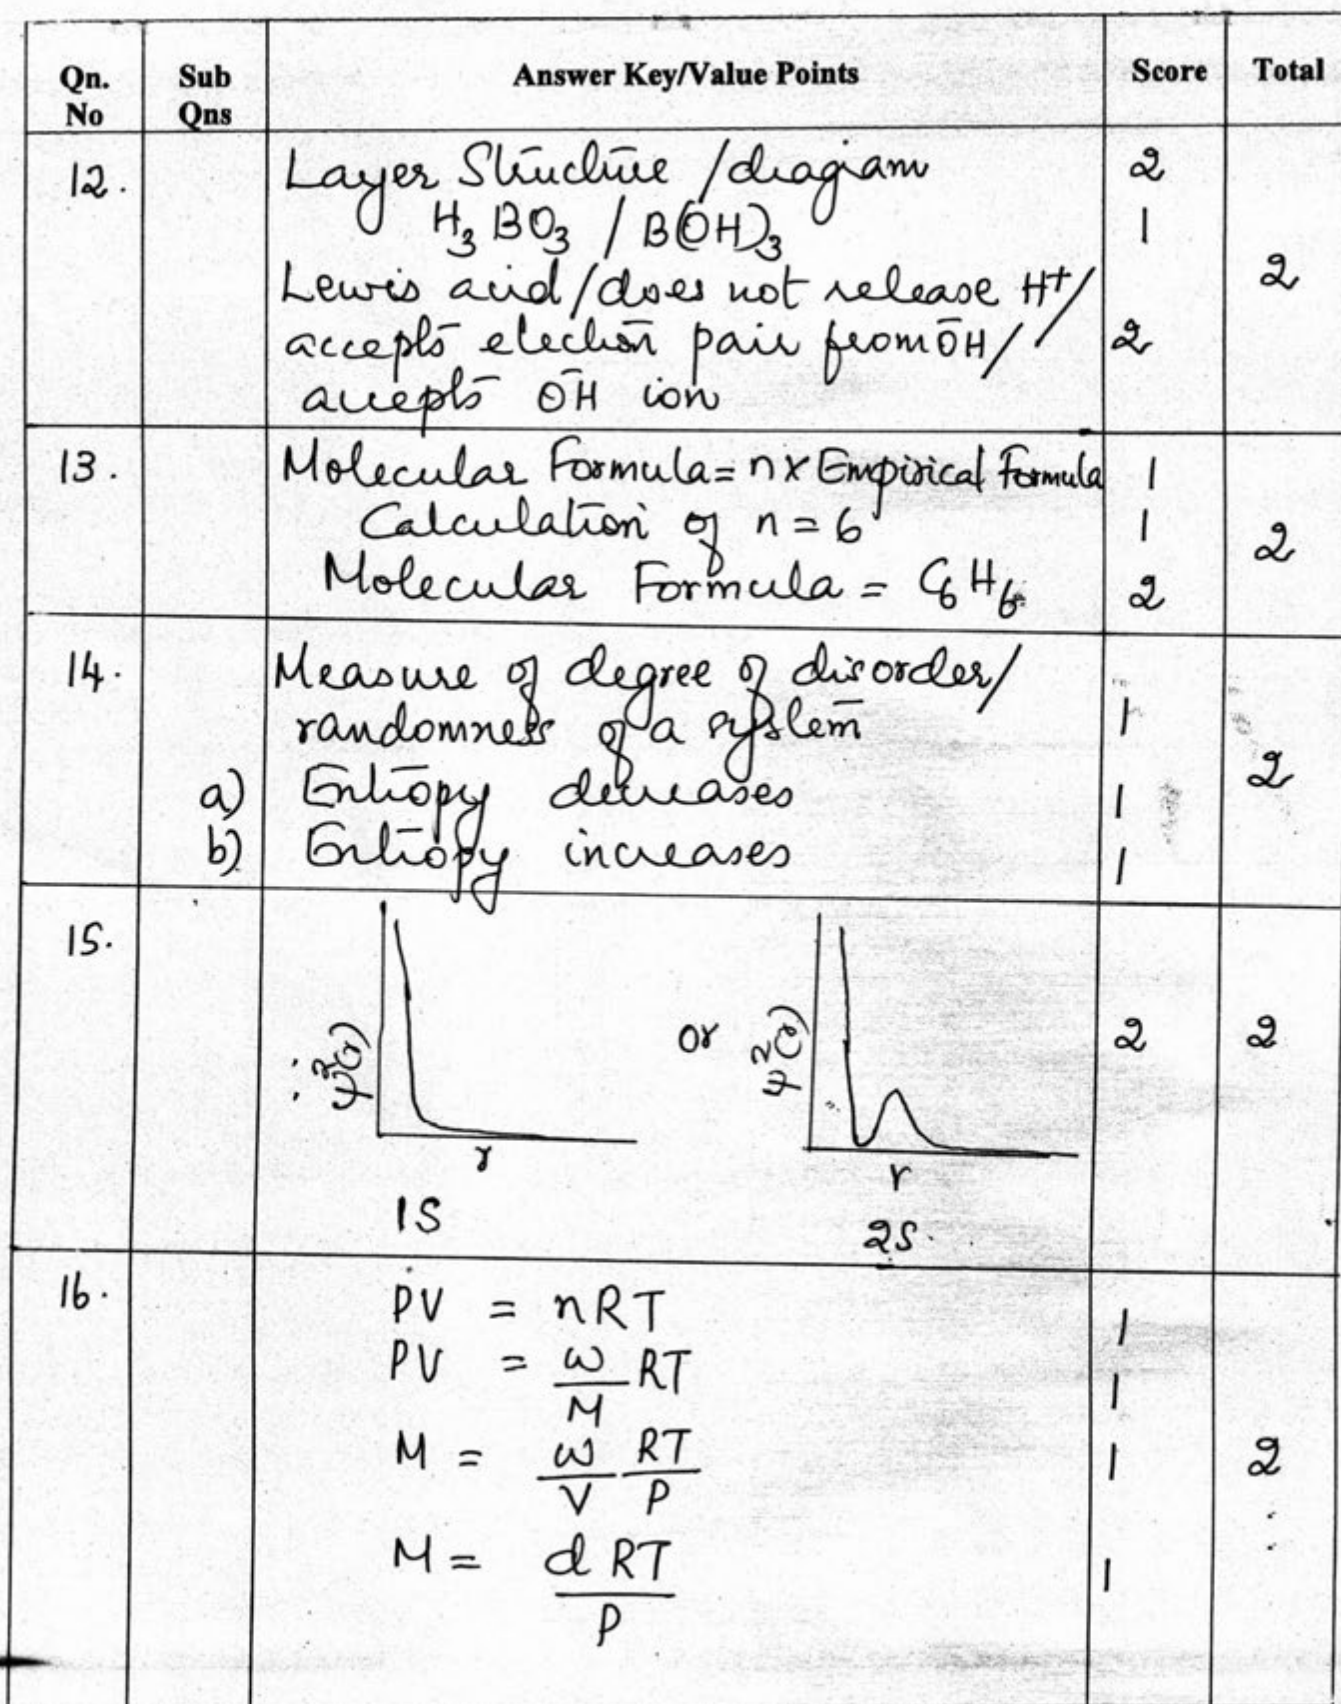 Qn. No Sub Qns Answer Key/Value Points Score Total
12. Layer Structure / diagram 2
H₃BO₃ / B(OH)₃ 1
2
Lewis acid/does not release H⁺/
accepts electron pair from ŌH/ 2
accepts ŌH ion
13. Molecular Formula = n x Empirical Formula 1
Calculation of n = 6 1
2
Molecular Formula = C₆H₆ 2
14. Measure of degree of disorder/
randomness of a system 1
2
a) Entropy decreases 1
b) Entropy increases 1
15.
ψ²(r) or ψ²(r) 2 2
r r
1S 2S
16. PV = nRT 1
PV = w/M RT 1
M = w/V RT/P 1 2
M = d RT/P 1